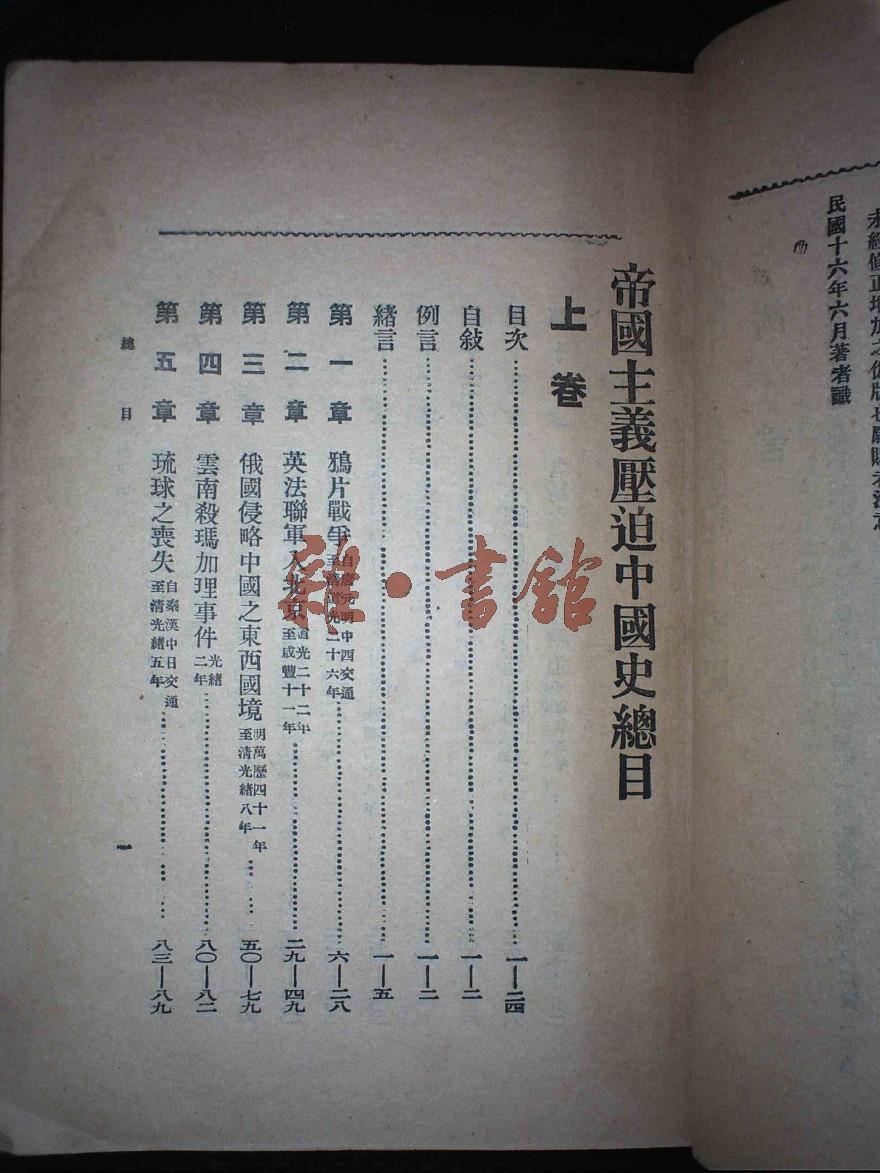 未經修正增加之
民國十六年六月著者識
帝國主義壓迫中國史總目
上卷
目次……一—二四
自敍……一—二
例言……一—二
緒言……一—五
第一章 鴉片戰爭 自唐元明中西交通至清道光二十六年……六—二八
第二章 英法聯軍入北京 道光二十二年至咸豐十一年……二九—四九
第三章 俄國侵略中國之東西國境 明萬歷四十一年至清光緒八年……五〇—七九
第四章 雲南殺瑪加理事件 光緒二年……八〇—八二
第五章 琉球之喪失 自秦漢中日交通至清光緒五年……八三—八九
總目
一
雜·書館